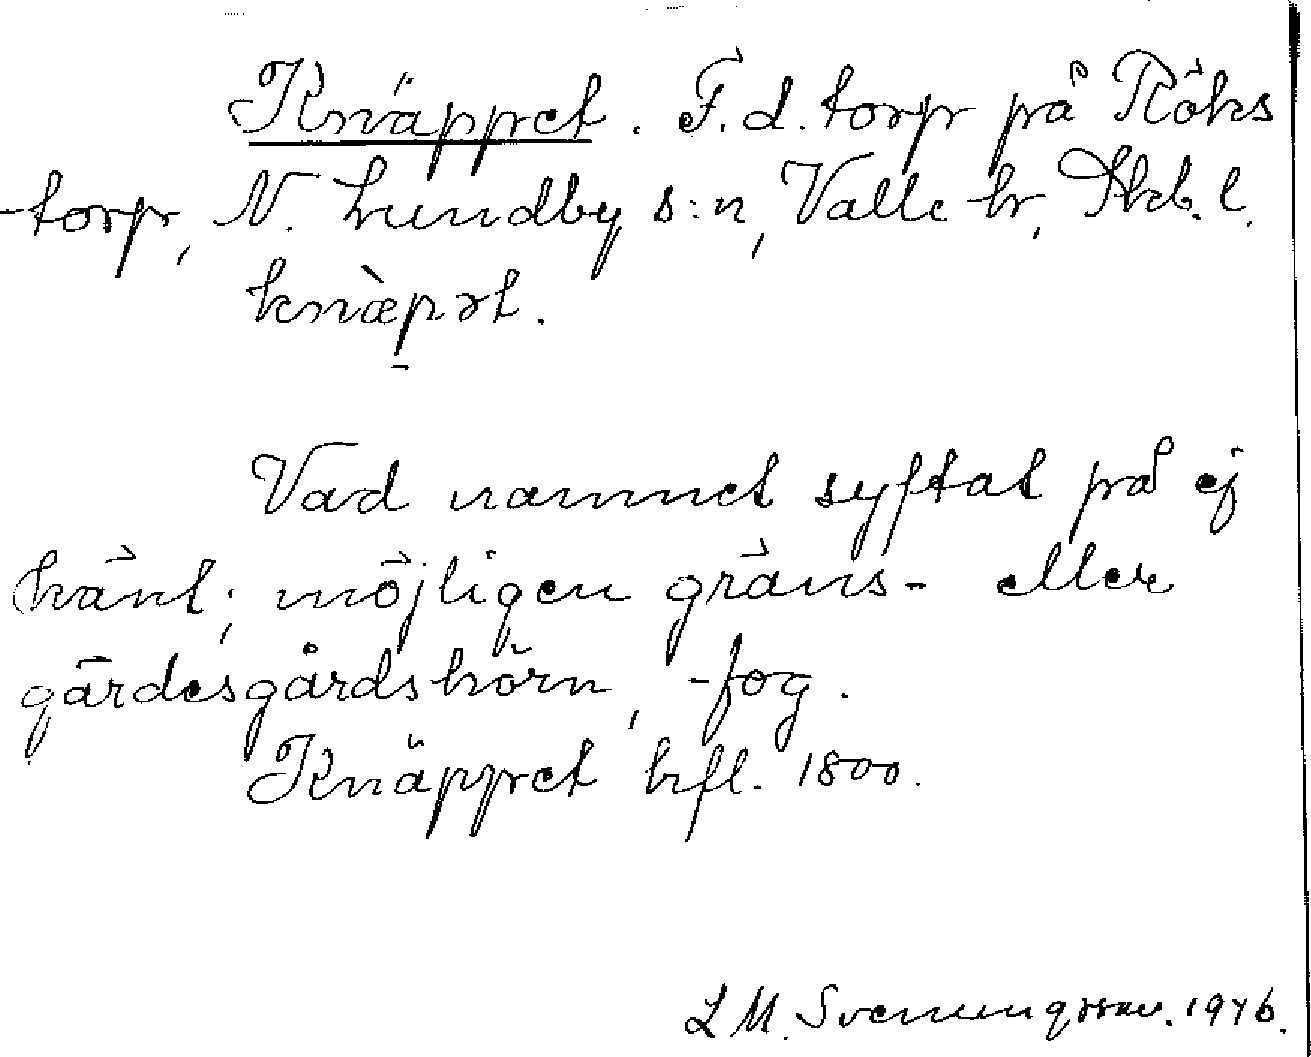 Knäppet. F.d. torp på Röks
-torp, N. Lundby s:n, Valle hr, Skb. l.
knæ̀pət.
Vad namnet syftat på ej
känt; möjligen gräns- eller
gärdesgårdshörn, -fog.
Knäppet hfl. 1800.
L M. Svenungsson. 1946.